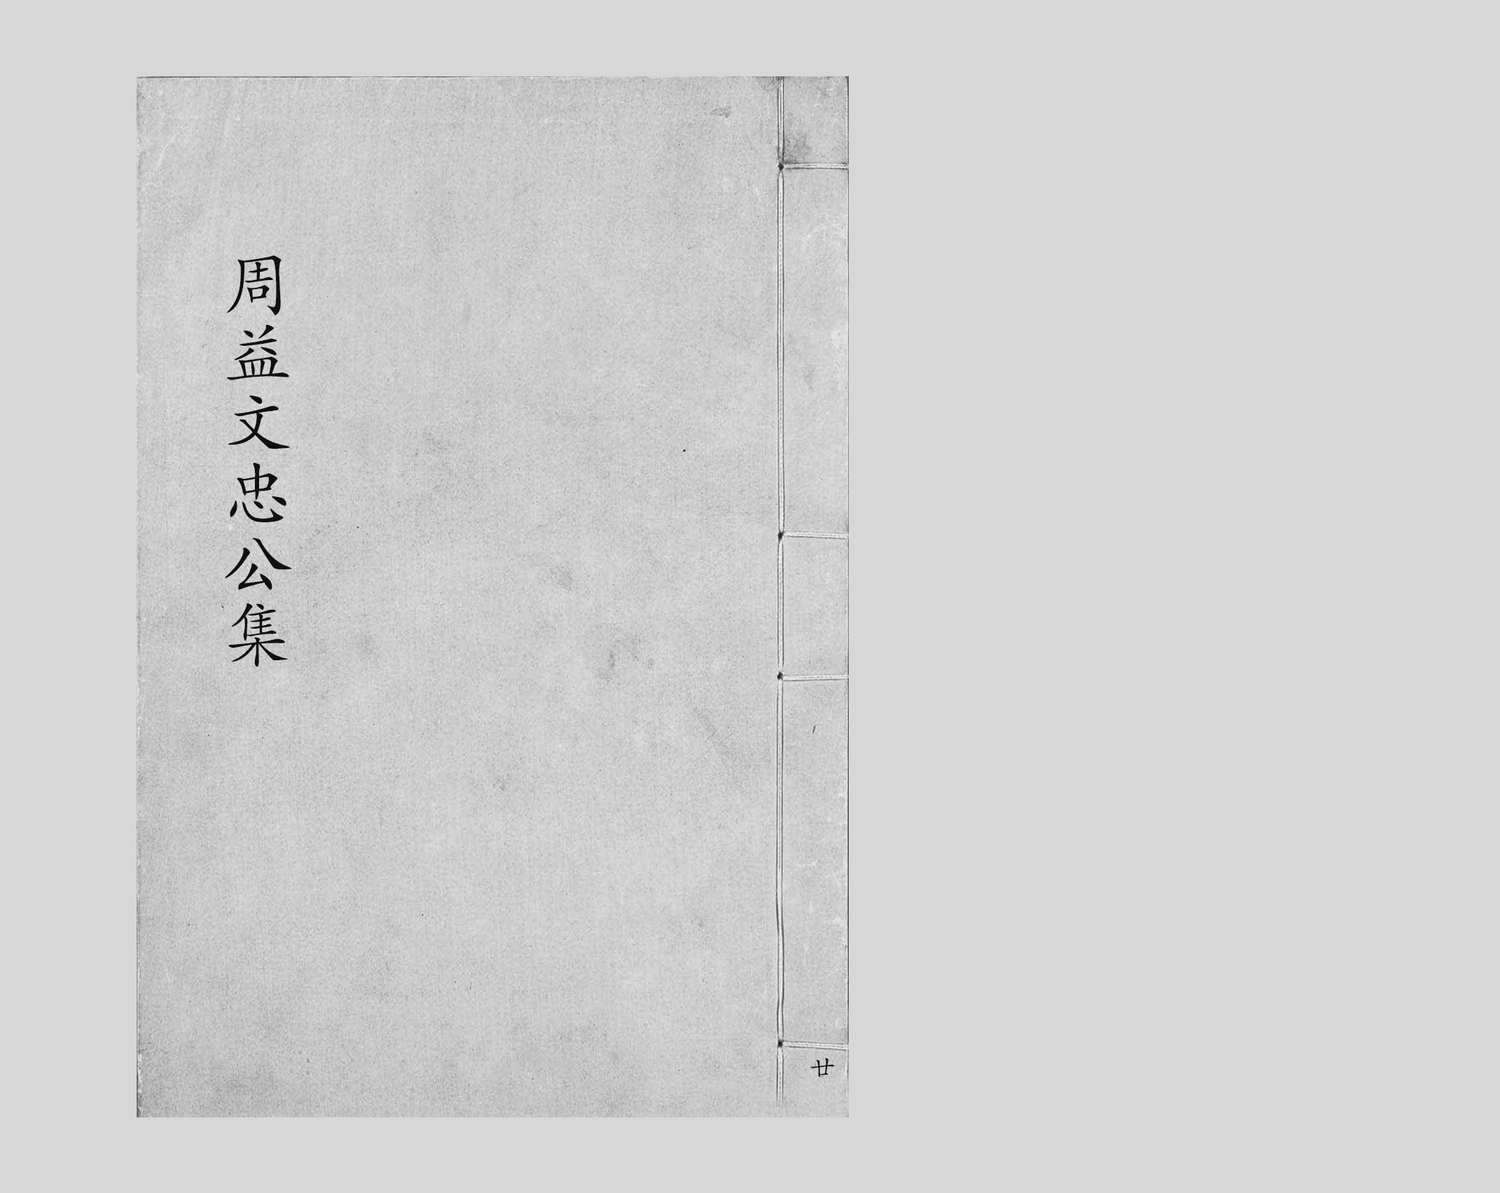 周益文忠公集
廿